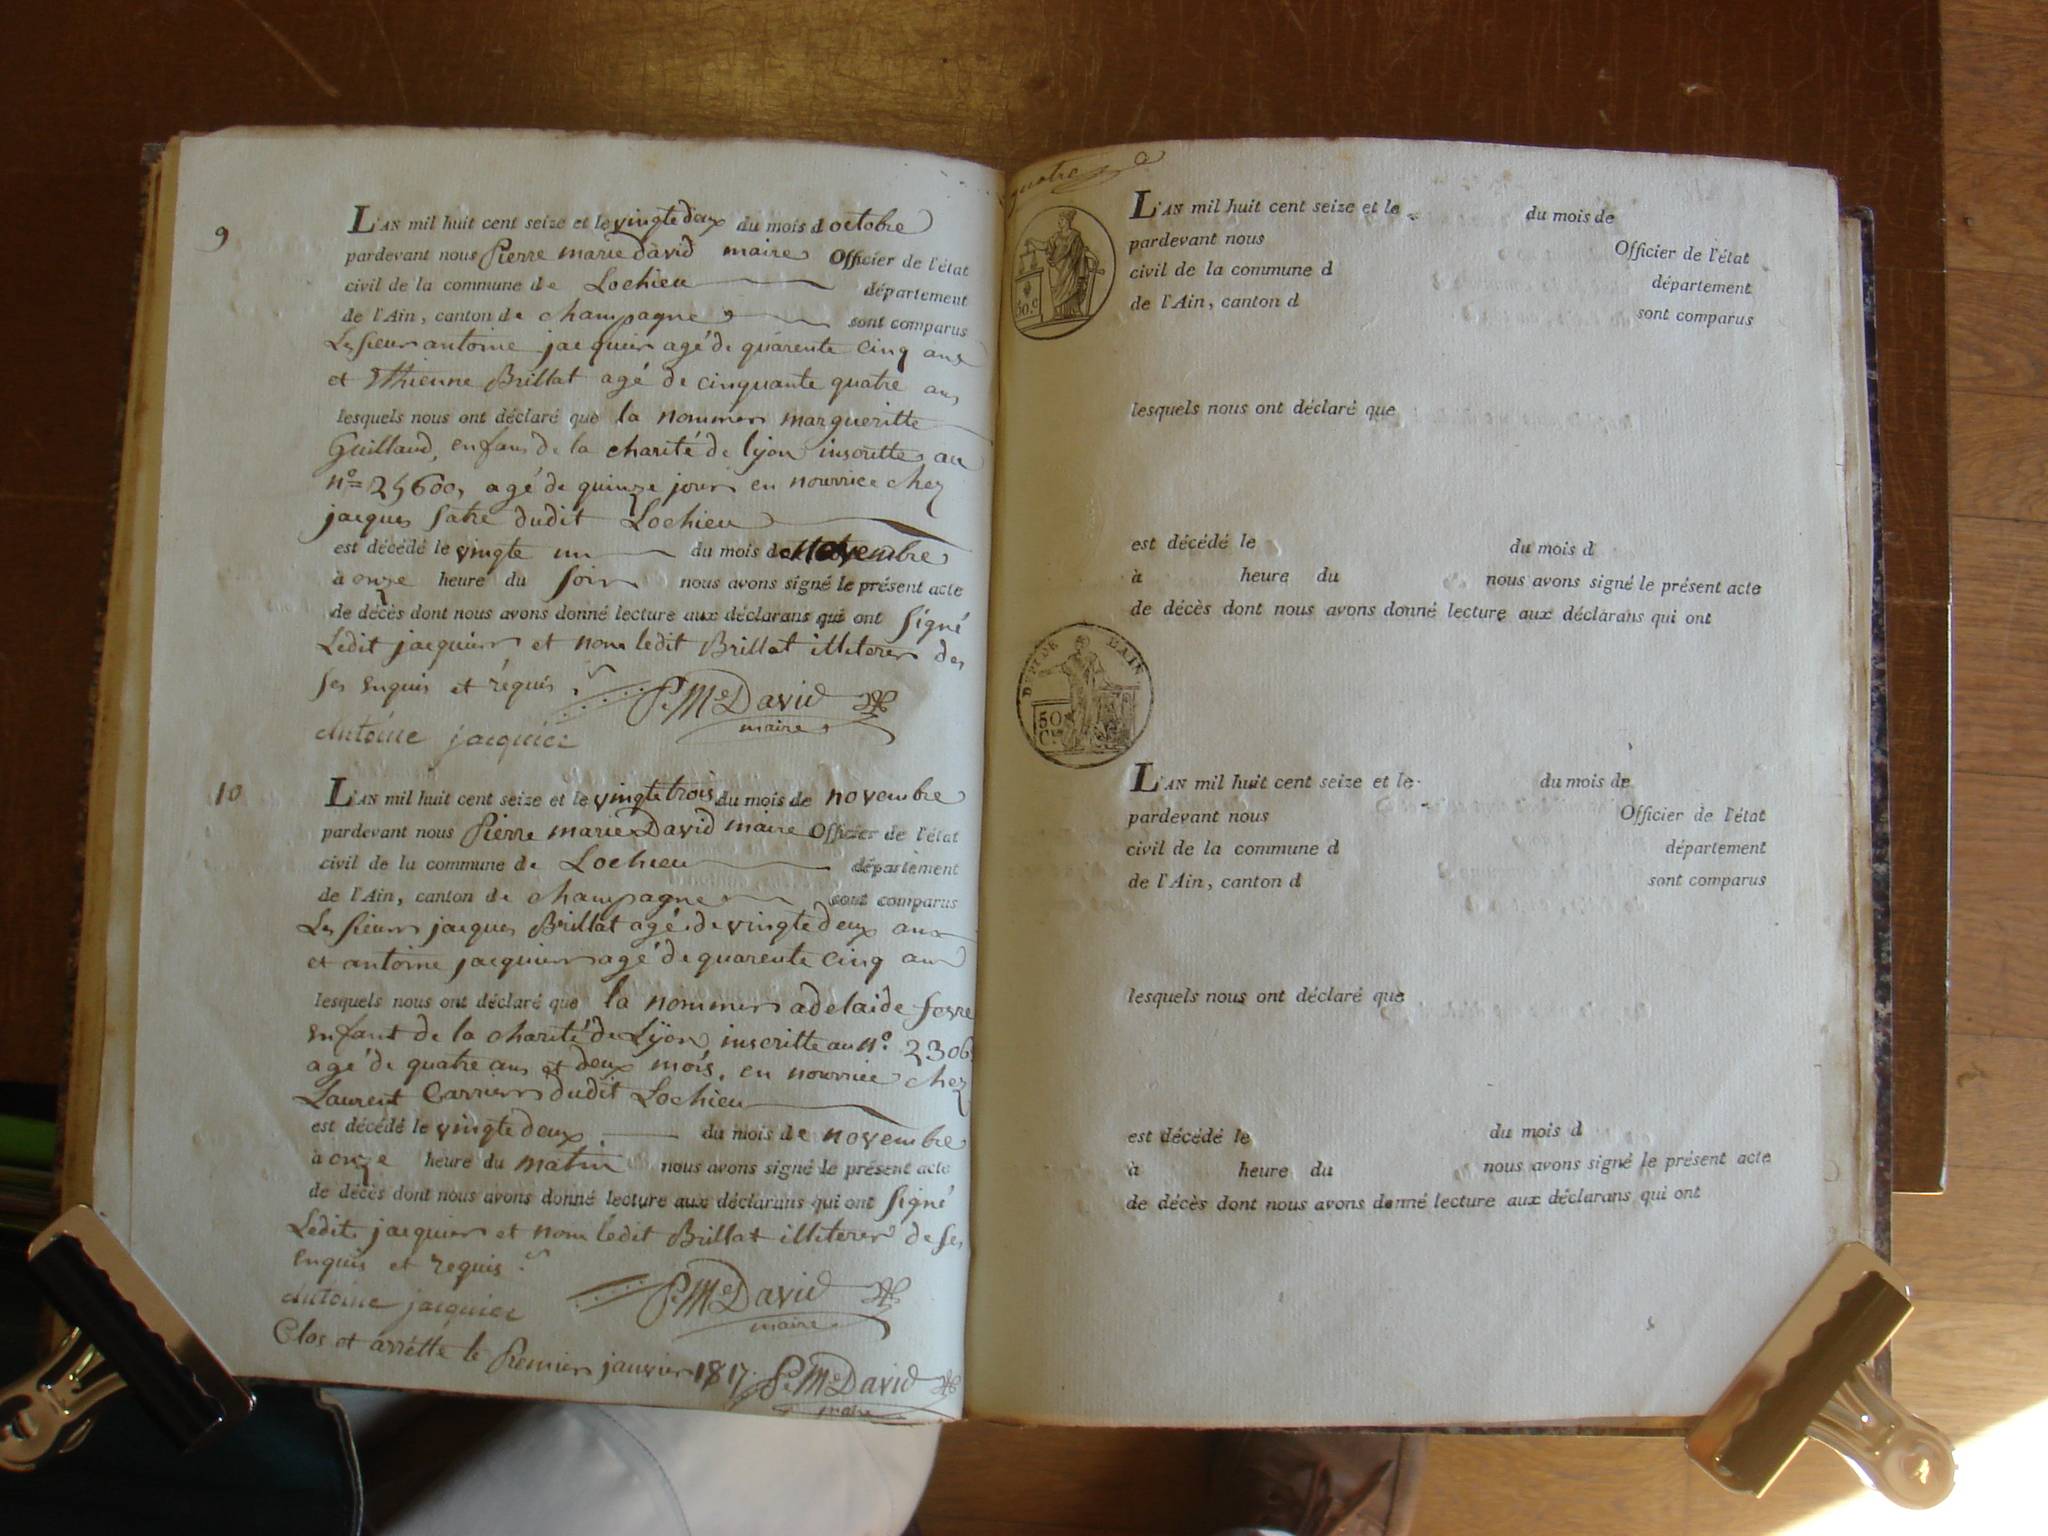 9
L'AN mil huit cent seize et le vingte deux du mois d octobre
pardevant nous Pierre marie david maire Officier de l'état
civil de la commune de Lochieu département
de l'Ain, canton de champagne sont comparus
Les sieurs antoine jacquier agé de quarente cinq ans
et Ethienne Brillat agé de cinquante quatre ans
lesquels nous ont déclaré que la nommer margueritte
Guilland, enfans de la charité de lyon inscritte au
n.º 25600, agé de quinze jour en nourrice chez
jacques fatre dudit Lochieu
est décédé le vingte un du mois de novembre
à onze heure du soir nous avons signé le présent acte
de décès dont nous avons donné lecture aux déclarans qui ont signé
Ledit jacquier et non ledit Brillat illiterer des
ses enquis et réquis
P. Me David
maire
Antoine jacquier
10
L'AN mil huit cent seize et le vingte trois du mois de novembre
pardevant nous Pierre marie David maire Officier de l'état
civil de la commune de Lochieu département
de l'Ain, canton de champagne sont comparus
Les sieurs jacques Brillat agé de vingte deux ans
et antoine jacquier agé de quarente cinq ans
lesquels nous ont déclaré que la nommer adelaide
enfant de la charité de Lÿon inscritte au n.º 2306
agé de quatre ans et deux mois, en nourrice chez
Laurent Carrier dudit Lochieu
est décédé le vingte deux du mois de novembre
à onze heure du matin nous avons signé le présent acte
de décès dont nous avons donné lecture aux déclarans qui ont signé
Ledit jacquier et non ledit Brillat illiterer de ses
enquis et requis
P. Me David
maire
Antoine jacquier
Clos et arrétté le Premier janvier 1817. P. Me David
maire
quatre
50.c
L'AN mil huit cent seize et le du mois de
pardevant nous Officier de l'état
civil de la commune d département
de l'Ain, canton d sont comparus
lesquels nous ont déclaré que
est décédé le du mois d
à heure du nous avons signé le présent acte
de décès dont nous avons donné lecture aux déclarans qui ont
DEPT DE L'AIN
50
C.
L'AN mil huit cent seize et le du mois de
pardevant nous Officier de l'état
civil de la commune d département
de l'Ain, canton d sont comparus
lesquels nous ont déclaré que
est décédé le du mois d
à heure du nous avons signé le présent acte
de décès dont nous avons donné lecture aux déclarans qui ont